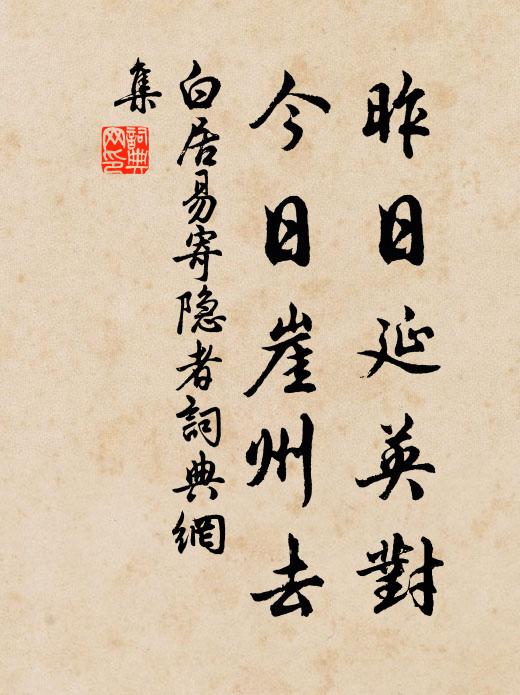 昨日延英對
今日崖州去
白居易寄隐者詞典網
集
詞典網印